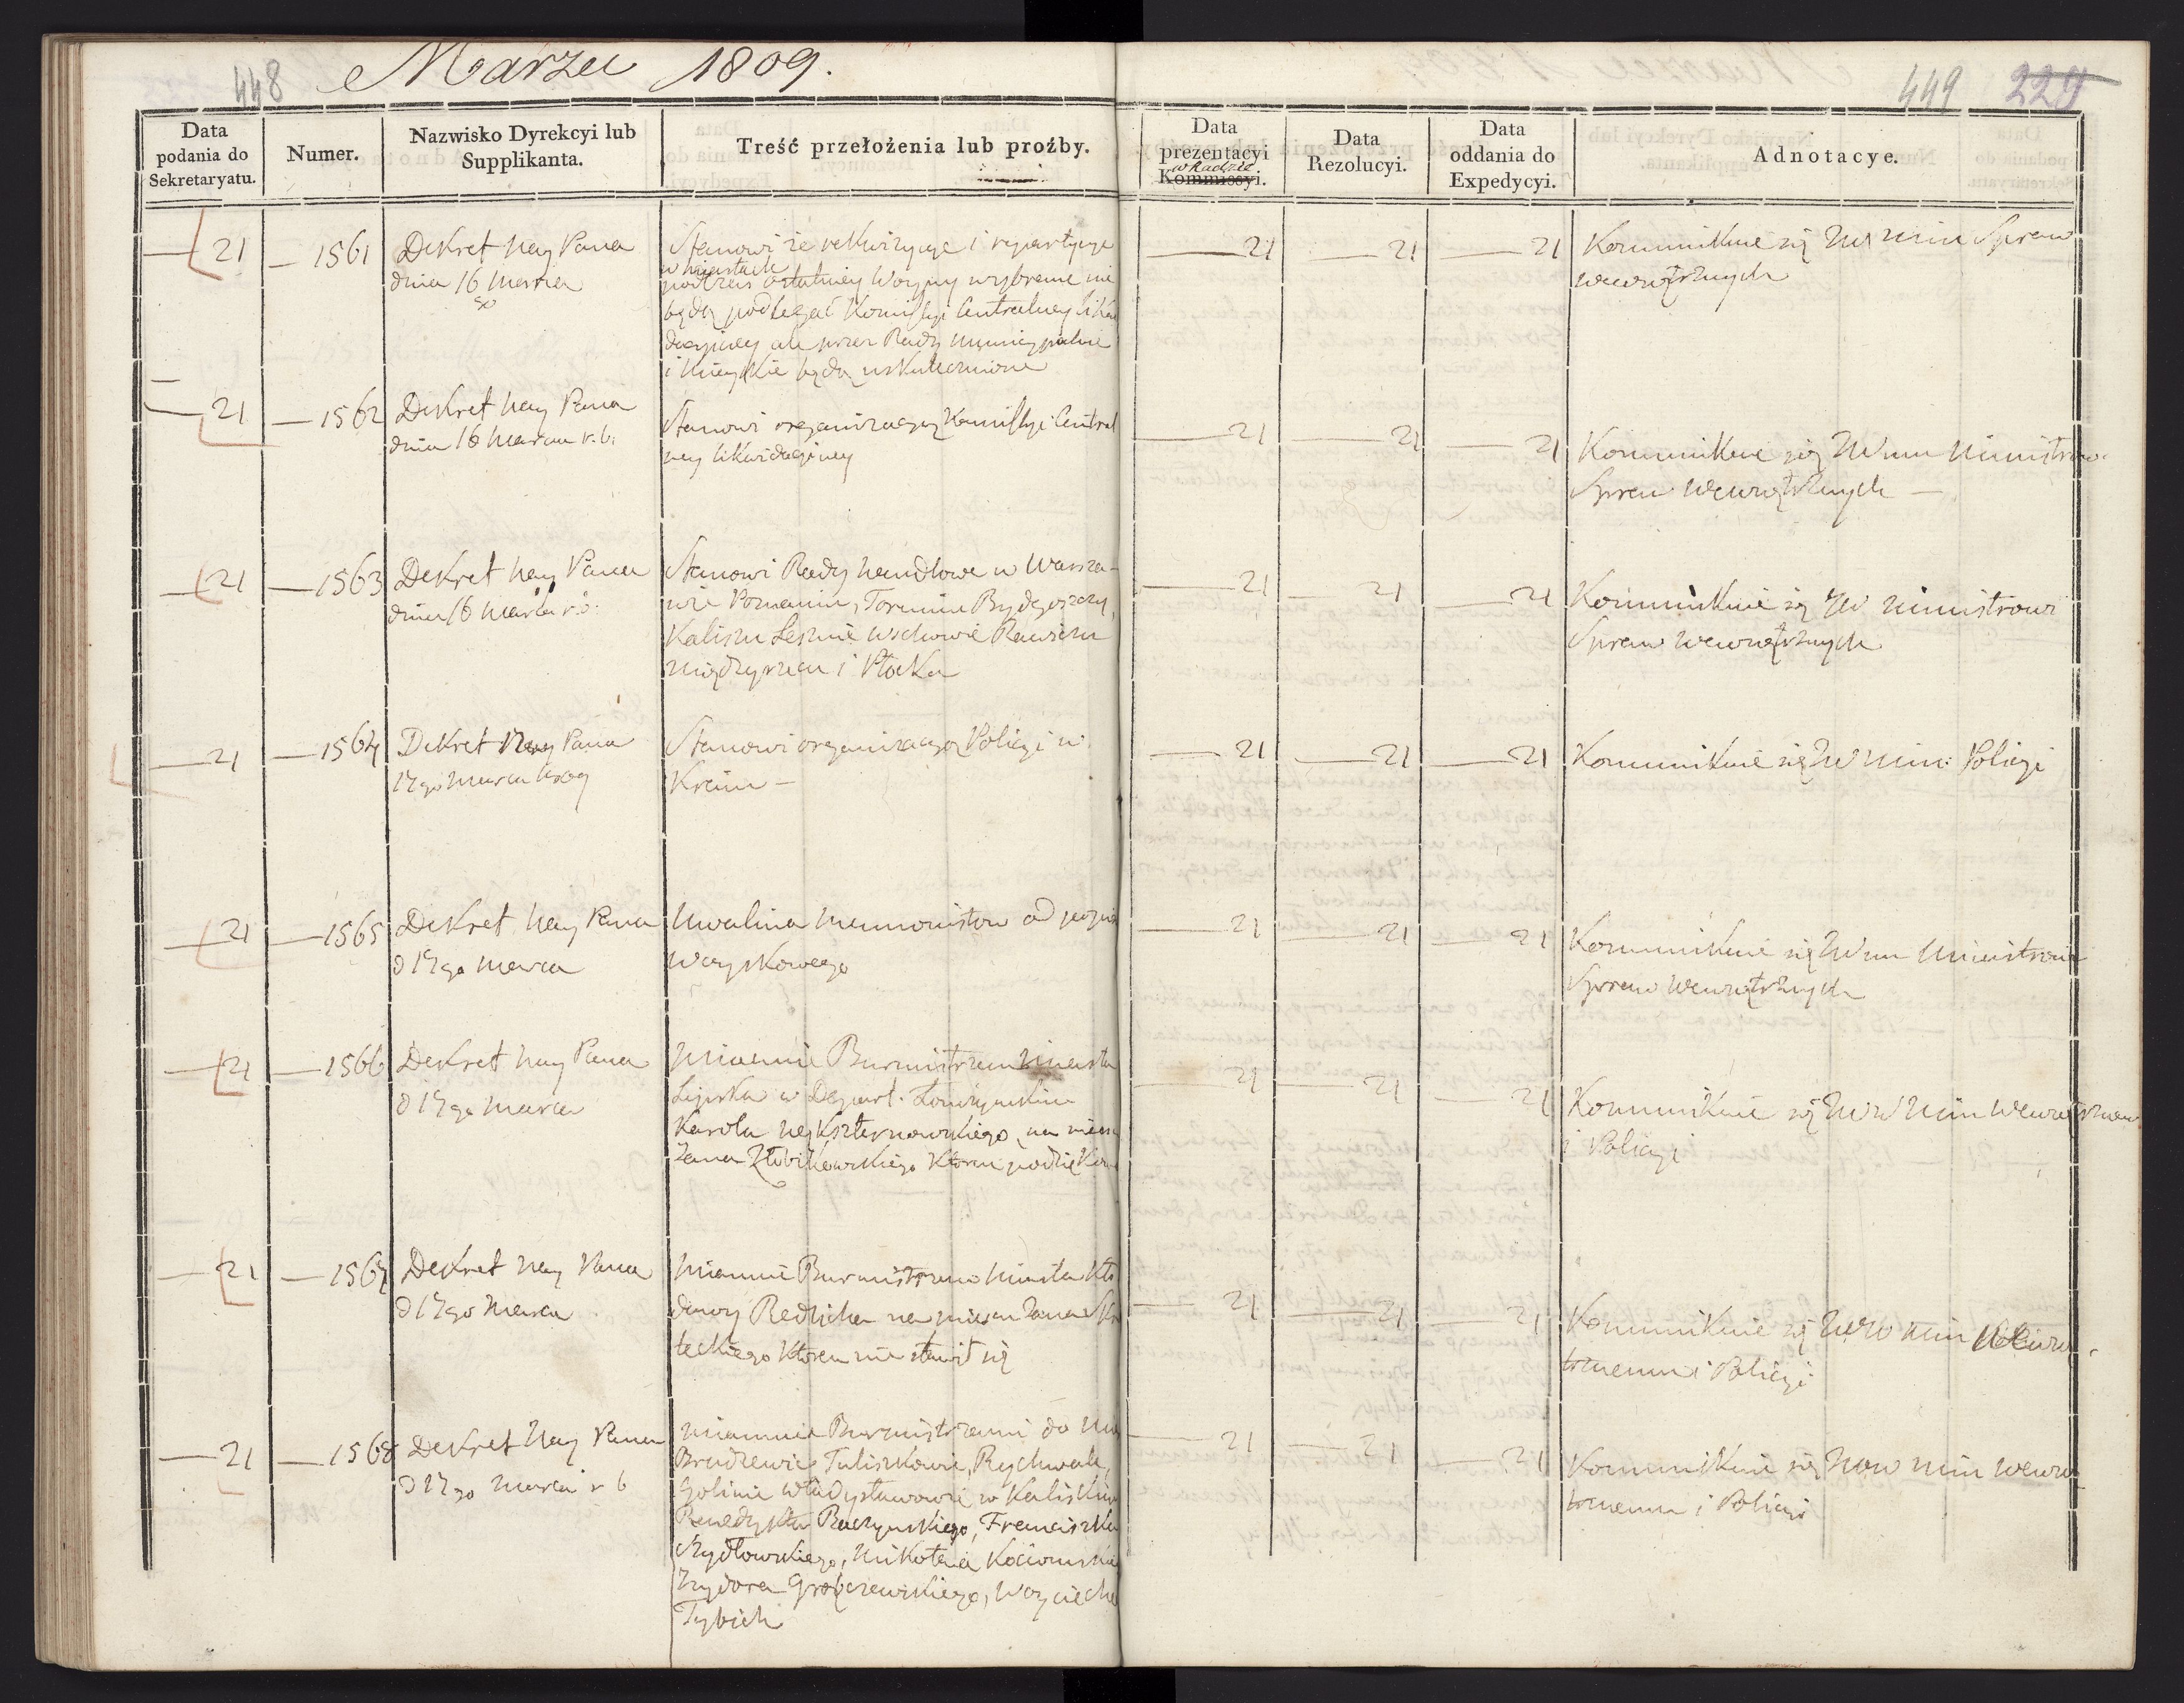 448 Marzec 1809.
449 229
Data podania do Sekretaryatu.
Numer.
Nazwisko Dyrekcyi lub Supplikanta.
Treść przełożenia lub proźby.
Data prezentacyi Kommissyi. w Radzie
Data Rezolucyi.
Data oddania do Expedycyi.
Adnotacye.
21 — 1561 Dekret Nay Pana
dnia 16 Marca
Stanowi że rekwizycye i repartycye
w miastach
podczas ostatniey Woyny wybrane nie
będą podlegać Komissyi Centralney likwi
dacyiney ale przez Rady municypalne
i mieyskie będą uskutecznione
21 21 21
Kommunikuie się JW Min Spraw
wewnętrznych
21 — 1562 Dekret Nay Pana
dnia 16 Marca r. b.
Stanowi organizacyą Komissyi Central
ney likwidacyiney
21 21 21
Kommunikuie się JW Ministrowi
Spraw Wewnętrznych —
21 — 1563 Dekret Nay Pana
dnia 16 Marca r. b.
Stanowi Rady handlowe w Warsza-
wie Poznaniu, Toruniu Bydgoszczy,
Kaliszu Lesznie Wschowie Rawiczu
Międzyrzecu i Płocku
21 21 21
Kommunikuie się JW Ministrowi
Spraw Wewnętrznych
21 — 1564 Dekret Nay Pana
17go Marca 1809
Stanowi organizacyą Policyi w
Kraiu —
21 21 21
Kommunikuie się JW Min: Policyi
21 — 1565 Dekret Nay Pana
d 17go Marca
Uwalnia Mennonistow od
Woyskowego
21 21 21
Kommunikuie się JW Ministrowi
Spraw Wewnętrznych
21 — 1566 Dekret Nay Pana
d 17go Marca
Mianuie Burmistrzem Miasta
Lipska w Depart. Łomżyńskim
Karola na miesce
Jana Złobikowskiego
21 21 21
Kommunikuie się JWW Min Wewnętrznemu
i Policyi
21 — 1567 Dekret Nay Pana
d 17go Marca
Mianuie Burmistrzem Miasta Kło
dawy Redlicha na miesce Jana
teckiego ktoren nie stawił się
21 21 21
Kommunikuie się JWW Min Wewnę
trznemu i Policyi
21 — 1568 Dekret Nay Pana
d 17go Marca r b
Mianuie Burmistrzami do Mia
Brudzewie, Tuliszkowie, Rychwale,
Golinie Władysławowie w Kaliskim
Benedykta Raczynskiego, Franciszka
Szydłowskiego, Mikołaia
Izydora Grobczewskiego, Woyciecha
21 21 21
Kommunikuie się JWW Min Wewnę
trznemu i Policyi